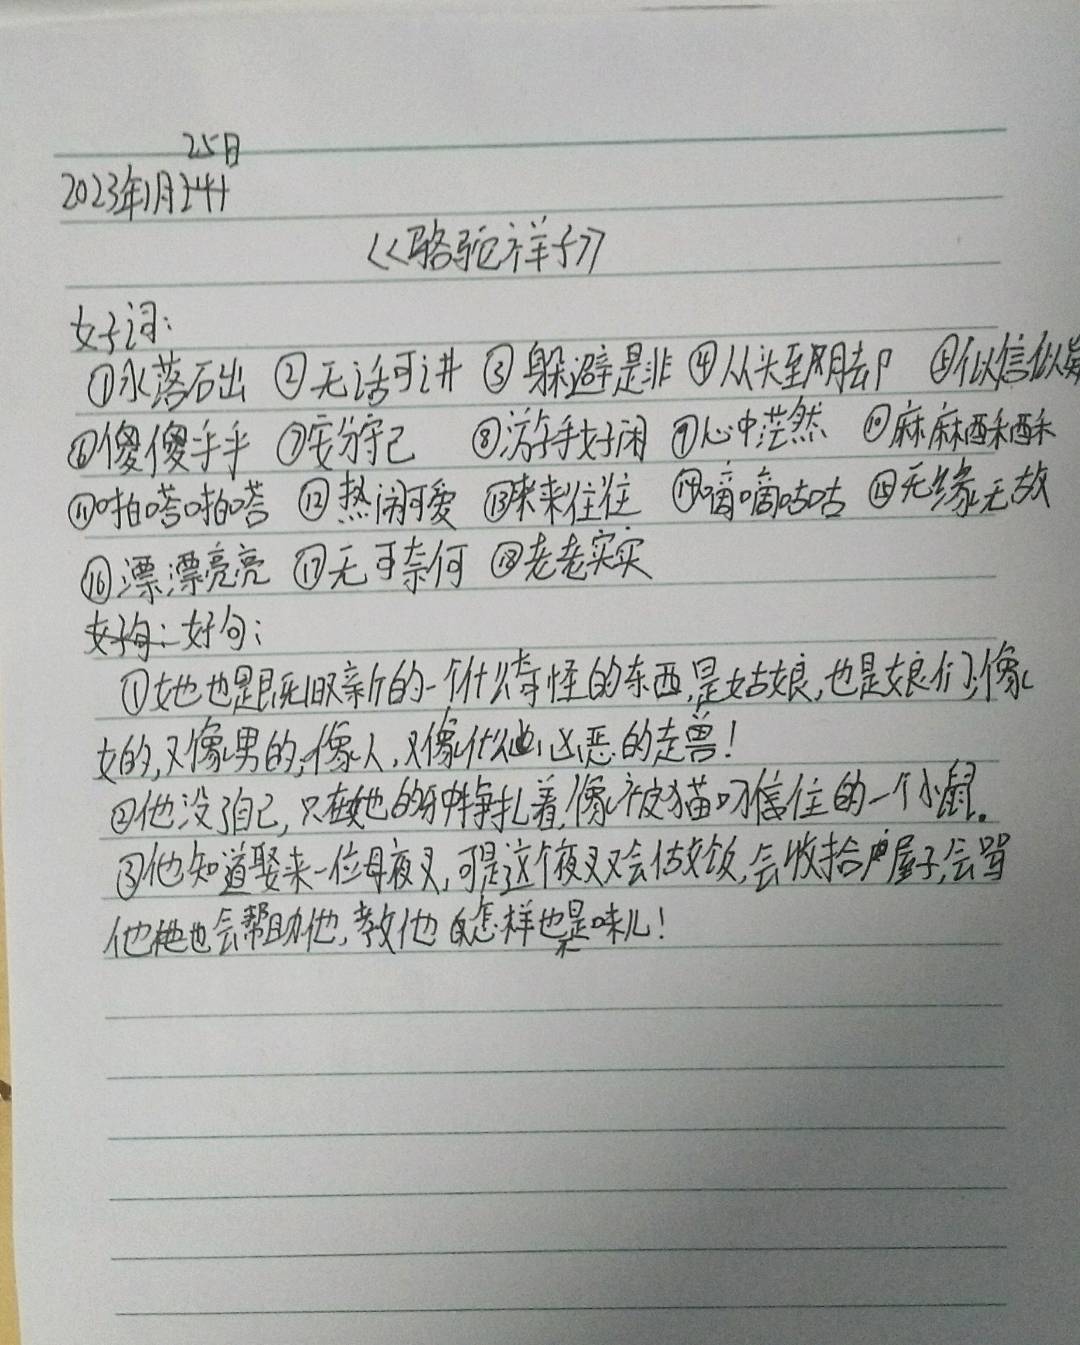 25日
2023年1月24日
《骆驼祥子》
好词:
①水落石出 ②无话可讲 ③躲避是非 ④从头至脚 ⑤似信似疑
⑥傻傻乎乎 ⑦安分守己 ⑧游手好闲 ⑨心中茫然 ⑩麻麻酥酥
⑪啪嗒啪嗒 ⑫热闹可爱 ⑬来来往往 ⑭嘀嘀咕咕 ⑮无缘无故
⑯漂漂亮亮 ⑰无可奈何 ⑱老老实实
好句: 好句:
①她也是既旧又新的一个什么奇怪的东西,是姑娘,也是娘们;像
女的,又像男的;像人,又像什么凶恶的走兽!
②他没了自己,只在她的牙中挣扎着,像被猫叼住的一个小鼠。
③他知道娶来一位母夜叉,可是这个夜叉又会估文饭,会收拾屋子,会骂
他也会帮助他,教他怎样也不是味儿!